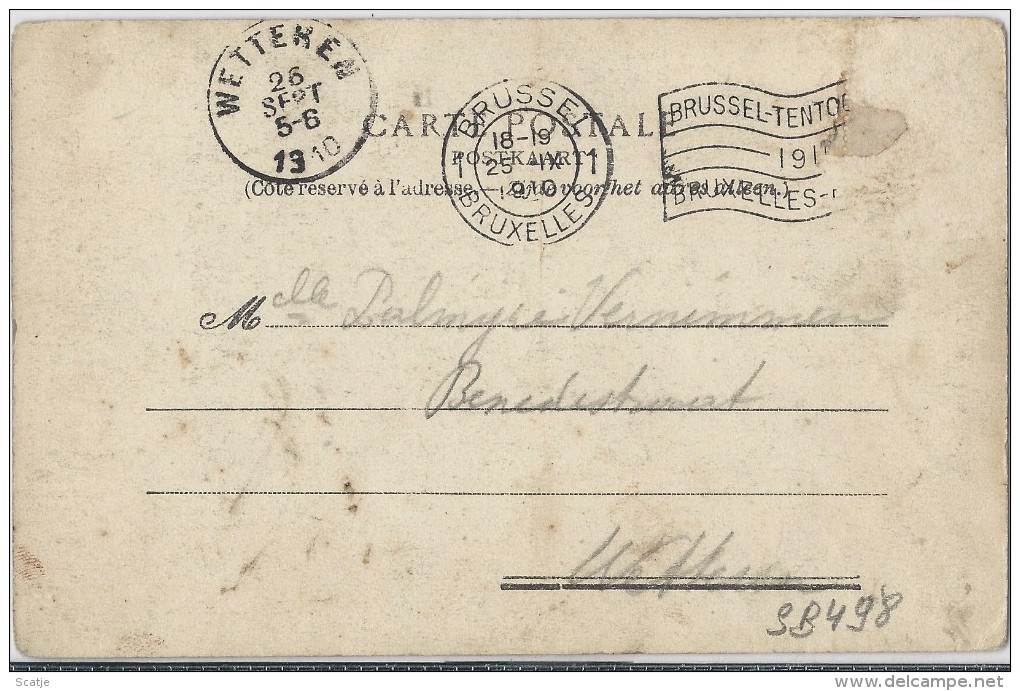 WETTEREN
26
SEPT
5-6
19 10
BRUSSEL
18-19
1 25 -IX 1
1910
BRUXELLES
BRUSSEL-TENTOO
191
BRUXELLES-
CARTE POSTALE
POSTKAART
(Côté réservé à l'adresse. — Zijde voor het adres alleen.)
Melle Vernimmen
Wetteren
SB498
Scatje
delcampe.net